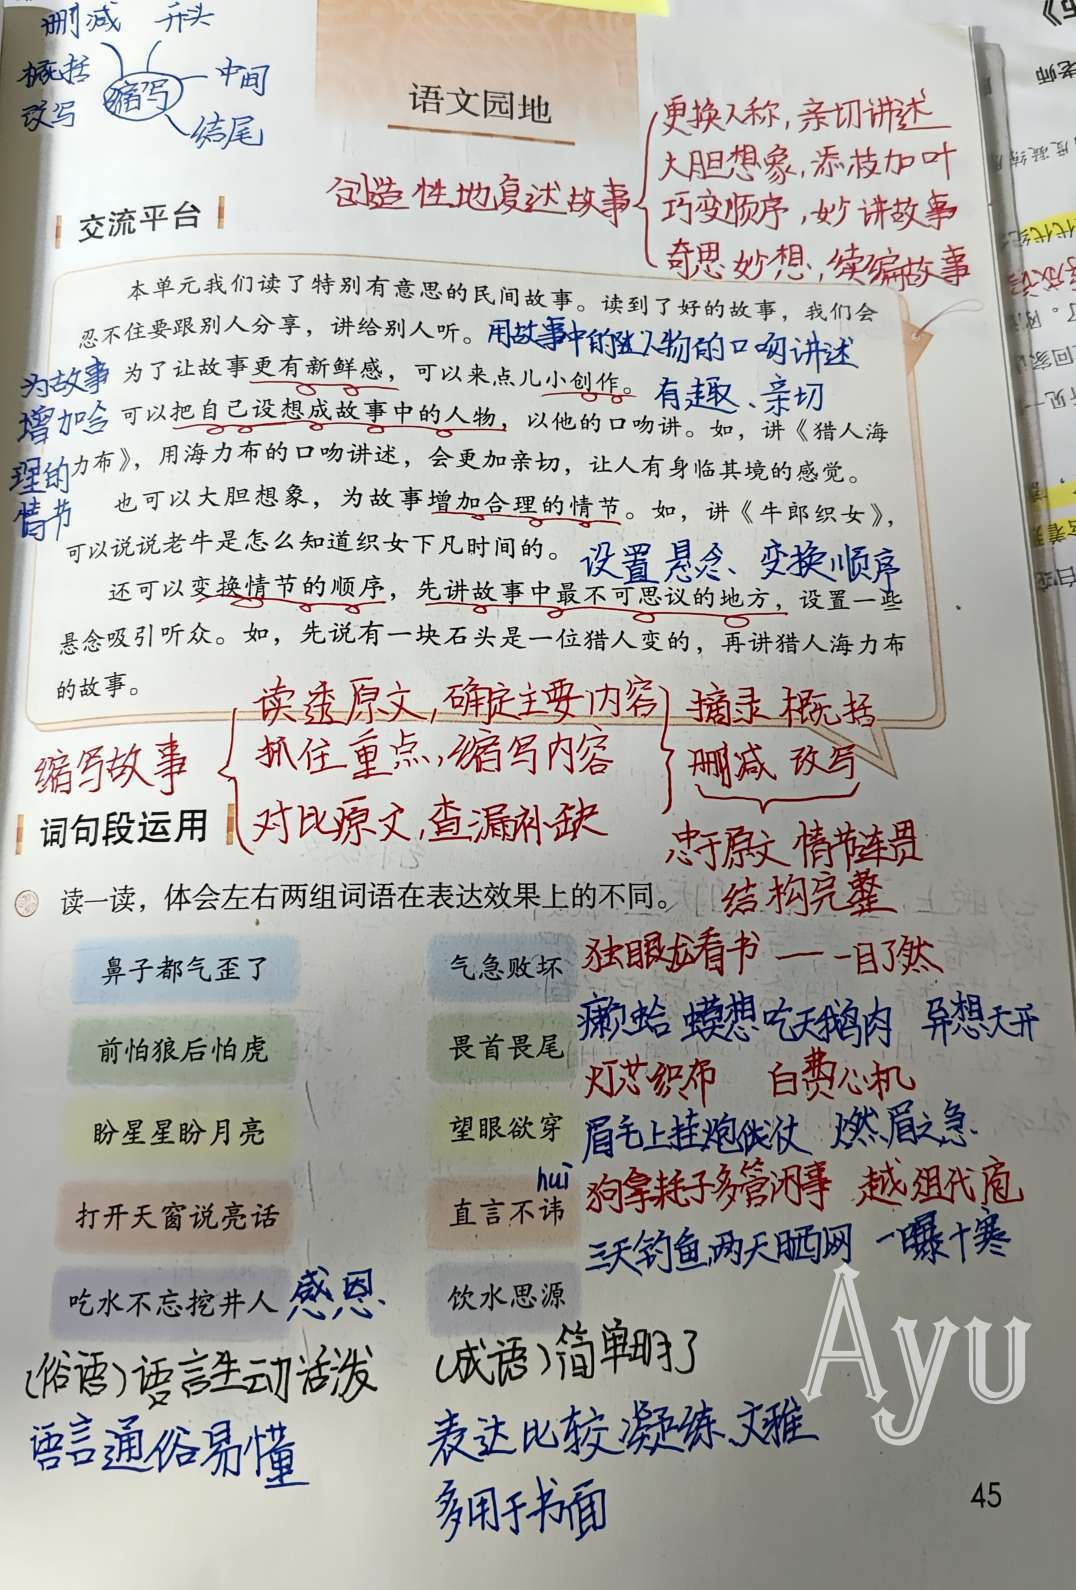 删减 开头
概括 缩写 中间
改写 结尾
语文园地
创造性地复述故事
更换人称，亲切讲述
大胆想象，添枝加叶
巧变顺序，妙讲故事
奇思妙想，续编故事
交流平台
本单元我们读了特别有意思的民间故事。读到了好的故事，我们会
忍不住要跟别人分享，讲给别人听。
用故事中的人物的口吻讲述
为了让故事更有新鲜感，可以来点儿小创作。
有趣、亲切
可以把自己设想成故事中的人物，以他的口吻讲。如，讲《猎人海
力布》，用海力布的口吻讲述，会更加亲切，让人有身临其境的感觉。
为故事
增加合
理的
情节
也可以大胆想象，为故事增加合理的情节。如，讲《牛郎织女》，
可以说说老牛是怎么知道织女下凡时间的。
设置悬念、变换顺序
还可以变换情节的顺序，先讲故事中最不可思议的地方，设置一些
悬念吸引听众。如，先说有一块石头是一位猎人变的，再讲猎人海力布
的故事。
缩写故事
读透原文，确定主要内容
抓住重点，缩写内容
对比原文，查漏补缺
摘录 概括
删减 改写
忠于原文 情节连贯
结构完整
词句段运用
读一读，体会左右两组词语在表达效果上的不同。
鼻子都气歪了 气急败坏
前怕狼后怕虎 畏首畏尾
盼星星盼月亮 望眼欲穿
打开天窗说亮话 直言不讳
huì
吃水不忘挖井人 感恩 饮水思源
独眼龙看书 —— 一目了然
癞蛤蟆想吃天鹅肉 异想天开
灯芯织布 白费心机
眉毛上挂炮仗 燃眉之急
狗拿耗子多管闲事 越俎代庖
三天钓鱼，两天晒网 一曝十寒
（俗语）语言生动活泼
语言通俗易懂
（成语）简单明了
表达比较凝练、文雅
多用于书面
Ayu
45